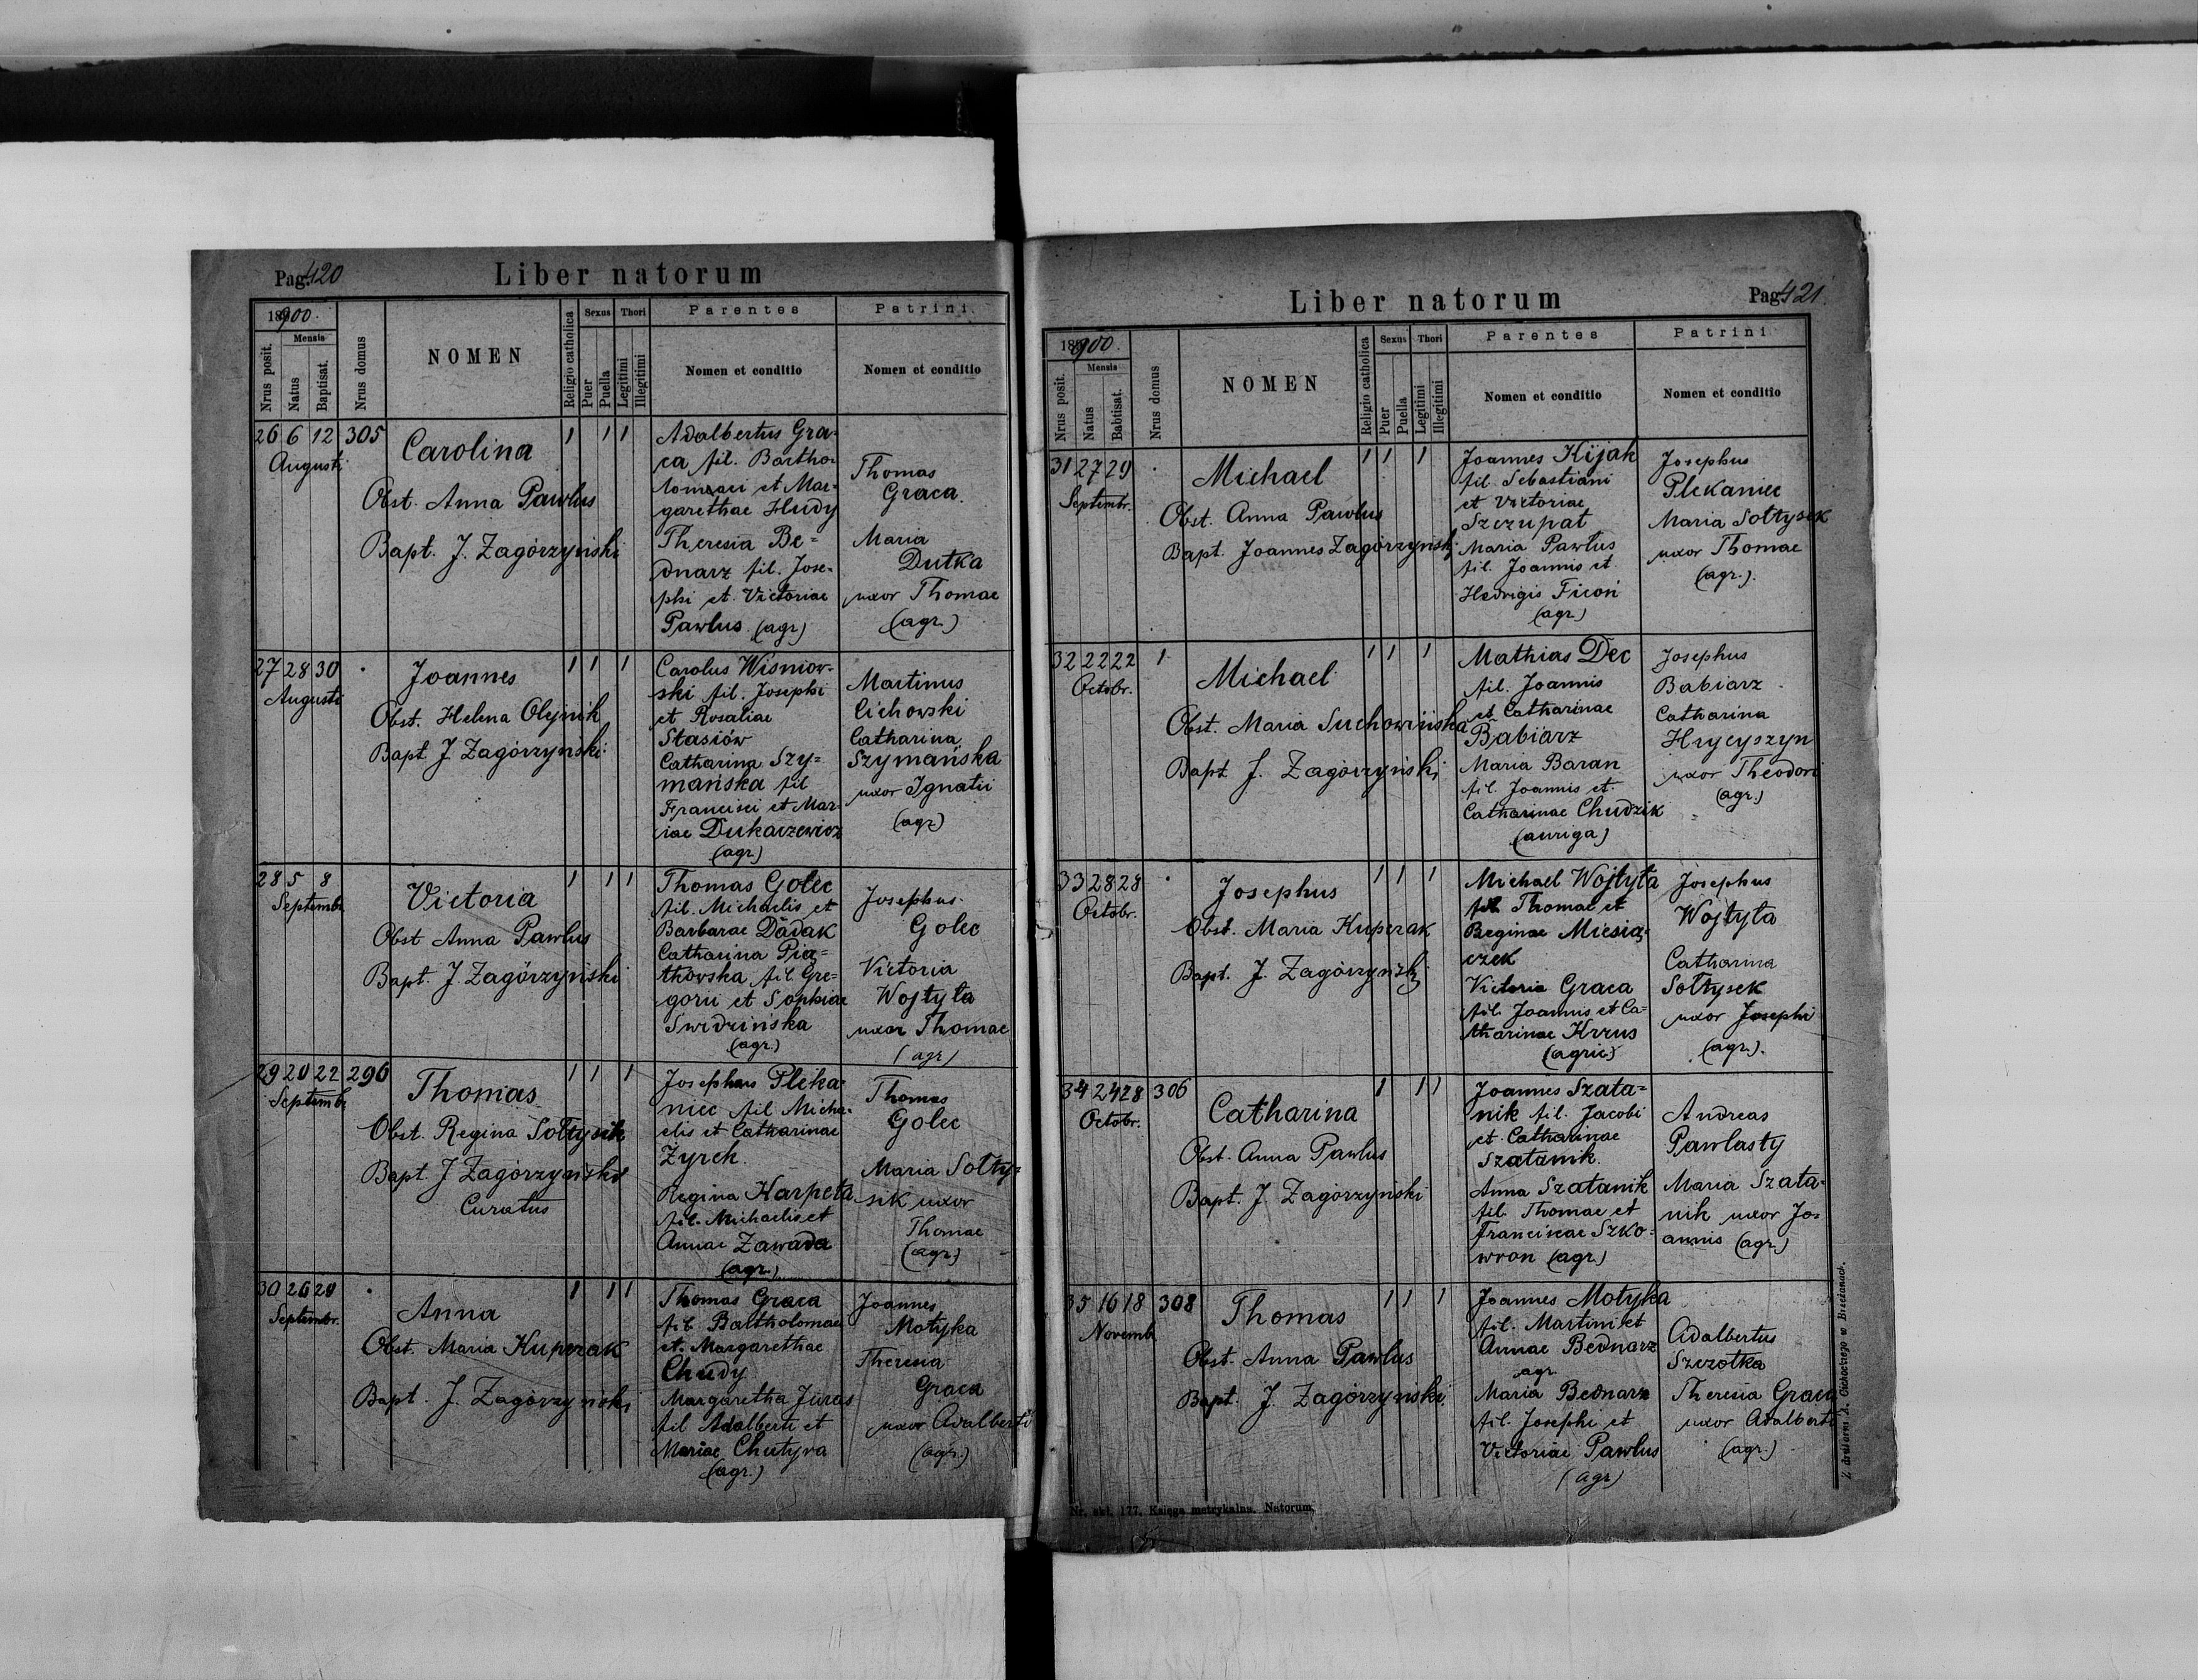 Pag. 420
Liber natorum
18900.
Mensis
Nrus posit.
Natus
Baptisat.
Nrus domus
NOMEN
Religio catholica
Sexus
Puer
Puella
Thori
Legitimi
Illegitimi
Parentes
Nomen et conditio
Patrini
Nomen et conditio
26 6 12 305
Augusti
Carolina
Obst. Anna Pawlus
Bapt. J. Zagórzyński
1 1 1
Adalbertus Gra-
ca fil. Bartho-
lomaei et Mar-
garethae Hudy
Theresia Be-
dnarz fil. Jose-
phi et Victoriae
Pawlus (agr)
Thomas
Graca.
Maria
Dutka
uxor Thomae
(agr.)
27 28 30 .
Augusti
Joannes
Obst. Helena Olejnik
Bapt. J. Zagórzyński
1 1 1
Carolus Wisniow-
ski fil. Josephi
et Rosaliae
Stasiów
Catharina Szy-
mańska fil
Francisci et Mar-
iae Dukaczewicz
(agr)
Martinus
Cichowski
Catharina
Szymańska
uxor Ignatii
(agr)
28 5 8
Septembr
Victoria
Obst Anna Pawlus
Bapt. J. Zagórzyński
1 1 1
Thomas Golec
fil. Michaelis et
Barbarae Dadak
Catharina Pią-
tkowska fil. Gre-
gorii et Sophiae
Swidzińska
(agr.)
Josephus
Golec
Victoria
Wojtyła
uxor Thomae
(agr)
29 20 22 296
Septemb
Thomas
Obst. Regina Sołtysik
Bapt. J Zagórzyński
Curatus
1 1 1
Josephus Pleka-
niec fil Micha-
elis et Catharinae
Żyrek
Regina Karpeta
fil. Michaelis et
Annae Zawada
(agr.)
Thomas
Golec
Maria Sołty-
sik uxor
Thomae
(agr)
30 26 29 .
Septembr.
Anna
Obst. Maria Kuperak
Bapt. J. Zagórzyński
1 1 1
Thomas Graca
fil. Bartholomaei
et Margarethae
Chudy
Margaretha Juras
fil Adalberti et
Mariae Chutyra
(agr.)
Joannes
Motyka
Theresia
Graca
uxor Adalberti
(agr.)
Pag. 421.
Liber natorum
18900.
Mensis
Nrus posit.
Natus
Babtisat.
Nrus domus
NOMEN
Religio catholica
Sexus
Puer
Puella
Thori
Legitimi
Illegitimi
Parentes
Nomen et conditio
Patrini
Nomen et conditio
31 27 29 .
Septembr.
Michael
Obst. Anna Pawlus
Bapt. Joannes Zagórzyński
1 1 1
Joannes Kijak
fil. Sebastiani
et Victoriae
Szczupat
Maria Pawlus
fil. Joannis et
Hedvigis Ficoń
(agr)
Josephus
Plekaniec
Maria Sołtysek
uxor Thomae
(agr.).
32 22 22 1
Octobr.
Michael
Obst. Maria Suchowińska
Bapt. J. Zagórzyński
1 1 1
Mathias Dec
fil. Joannis
et Catharinae
Babiarz
Maria Baran
fil. Joannis et
Catharinae Chudzik
(auriga)
Josephus
Babiarz
Catharina
Hrycyszyn
uxor Theodori
(agr.)
33 28 28 .
Octobr.
Josephus
Obst. Maria Kuperak
Bapt. J. Zagórzyński
1 1 1
Michael Wojtyła
fil. Thomae et
Reginae Miesią-
czek
Victoria Graca
fil. Joannis et Ca-
tharinae Krzus
(agric)
Josephus
Wojtyła
Catharina
Sołtysek
uxor Josephi
(agr.).
34 24 28 306
Octobr.
Catharina
Obst. Anna Pawlus
Bapt. J. Zagórzyński
1 1 1
Joannes Szata-
nik fil. Jacobi
et Catharinae
Szatanik
Anna Szatanik
fil. Thomae et
Franciscae Szko-
wron (agr)
Andreas
Pawlasty
Maria Szata-
nik uxor Jo-
annis (agr)
35 16 18 308
Novemb
Thomas
Obst. Anna Pawlus
Bapt. J. Zagórzyński
1 1 1
Joannes Motyka
fil. Martini et
Annae Bednarz
agr.
Maria Bednarz
fil. Josephi et
Victoriae Pawlus
(agr)
Adalbertus
Szczotka
Theresia Graca
uxor Adalberti
(agr.)
Nr. skl. 177. Księga metrykalna. Natorum.
Z drukarni A. Cichockiego w Brzeżanach.